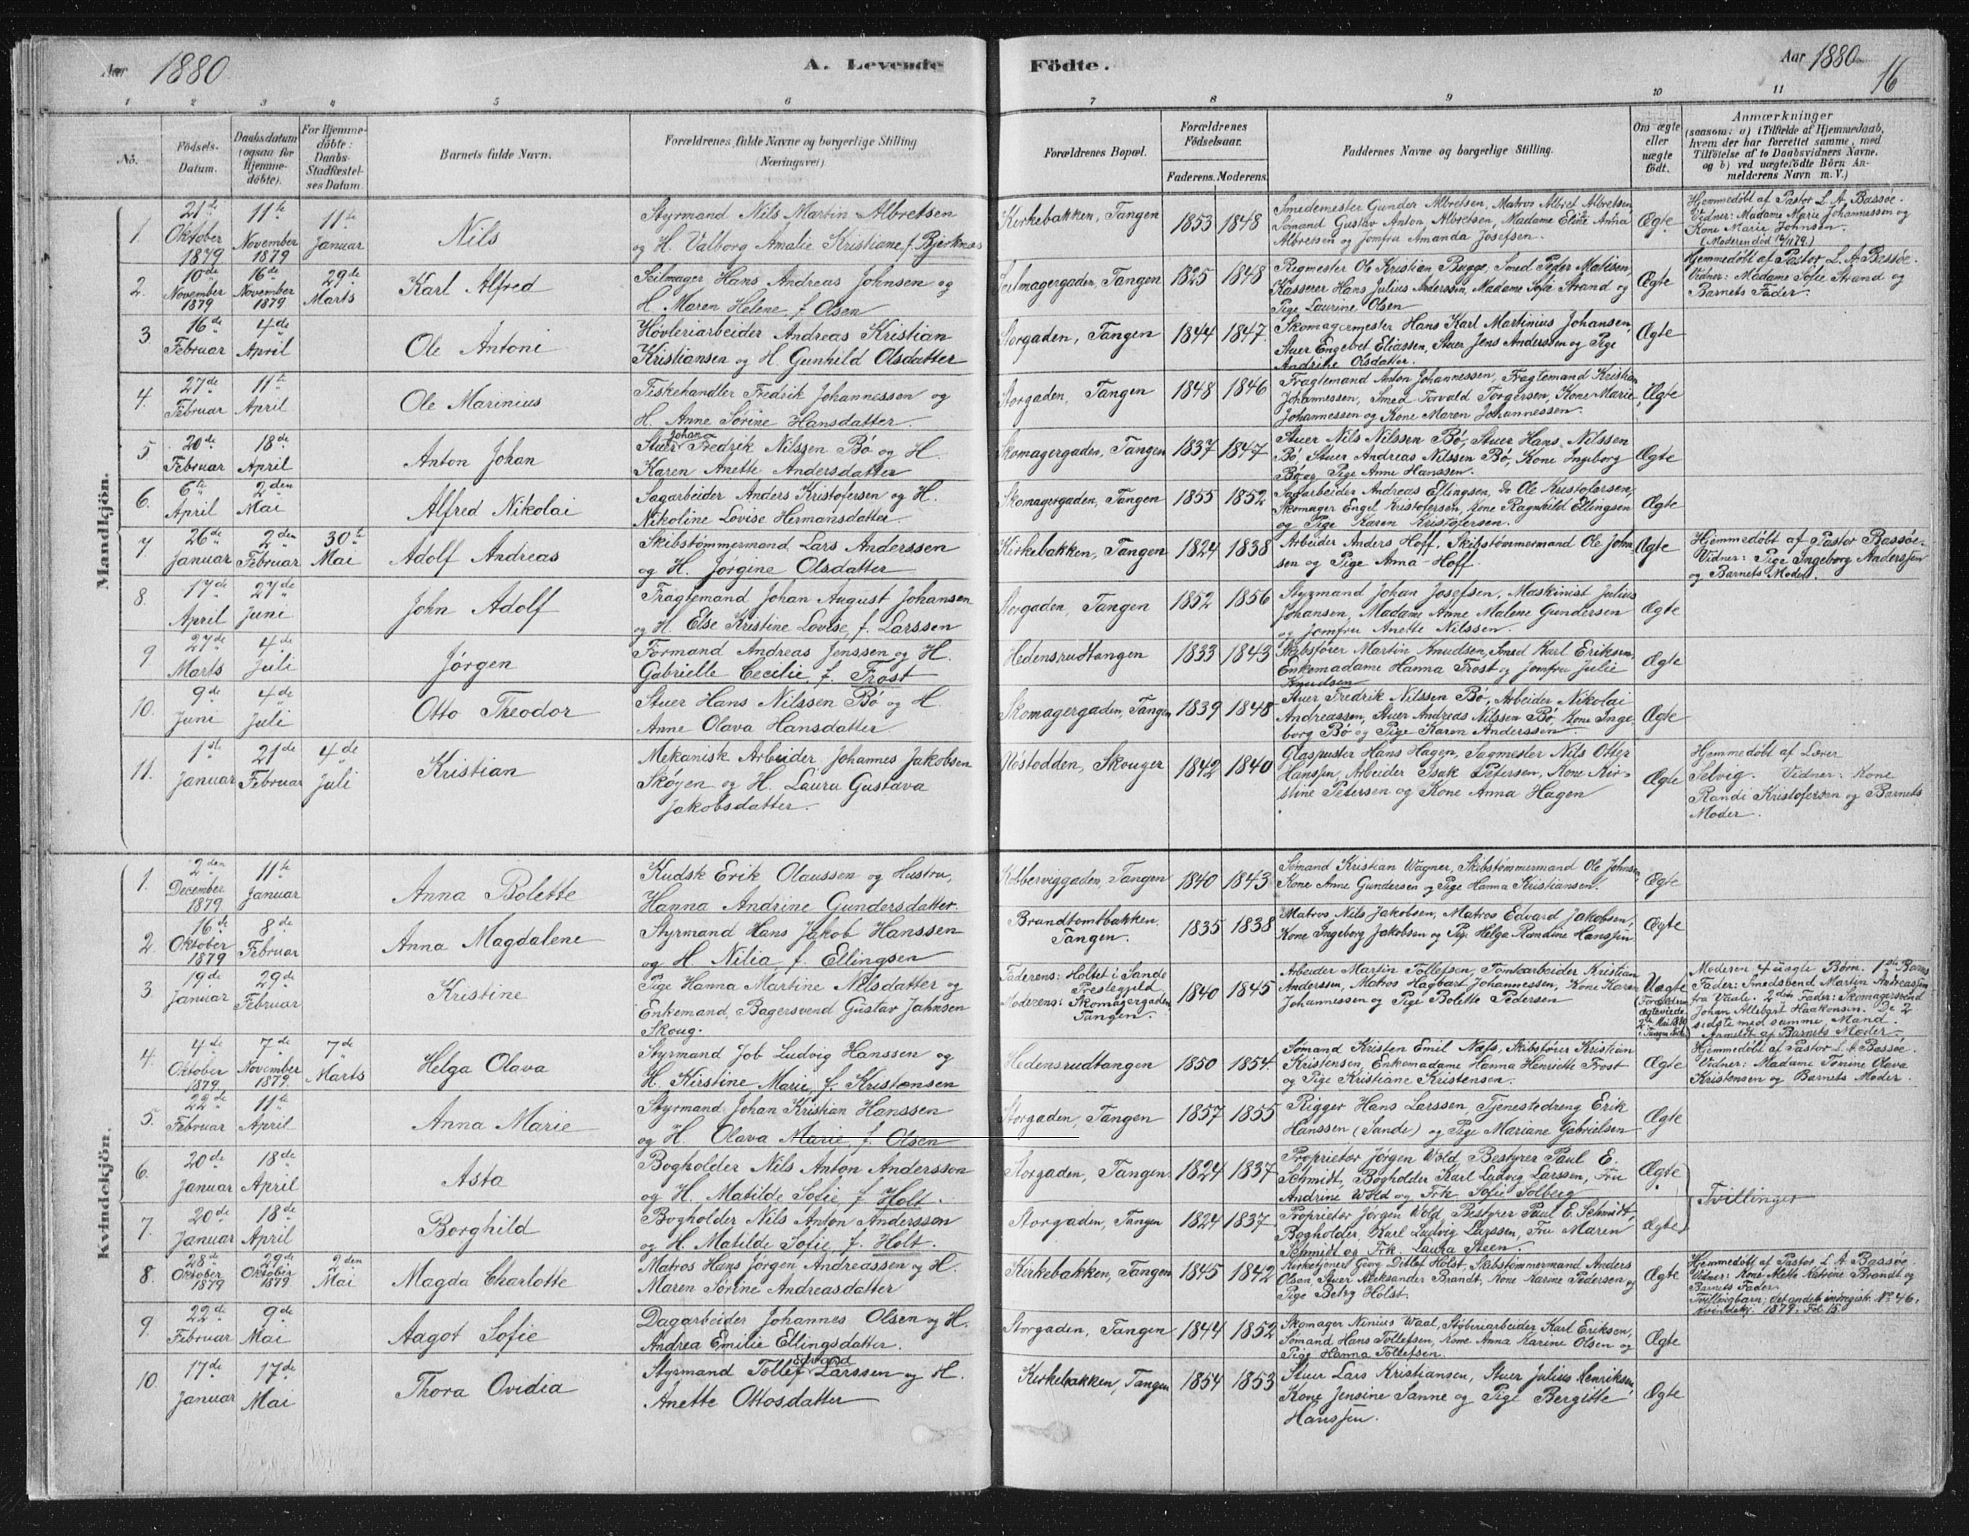 Aar 1880
A. Levende Födte.
Aar 1880
16
1 2 3 4 5 6 7 8 9 10 11
No.
Födsels-Datum.
Daabsdatum (ogsaa for Hjemmedöbte).
For Hjemmedöbte: Daabs-Stadfæstelses Datum.
Barnets fulde Navn.
Forældrenes fulde Navne og borgerlige Stilling (Næringsvei)
Forældrenes Bopæl.
Forældrenes Födselsaar.
Faderens. Moderens.
Faddernes Navne og borgerlige Stilling.
Om ægte eller uægte födt.
Anmærkninger
(saasom: a) i Tilfælde af Hjemmedaab, hvem der har forrettet samme, med Tilföielse af to Daabsvidners Navne, og b) ved uægtefödte Börn Anmelderens Navn m. V.)
Mandkjön.
1. 21de Oktober 1879 11te November 1879 11te Januar
Nils
Styrmand Nils Martin Albretsen
og H. Valborg Amalie Kristiane f. Bjerknæs
Kirkebakken, Tangen 1853 1848
Smedemester Gunder Albretsen, Matros Albret Albretsen
Sømand Gustav Anton Albretsen, Madame Eline Anna
Albretsen og Jomfru Amanda Josefsen.
Ægte
Hjemmedøbt af Pastor L. A. Bassøe.
Vidner: Madame Marie Johannessen og
Kone Marie Johnsen.
(Moderen død 12/11 79.)
2. 10de November 1879 16de November 1879 29de Marts
Karl Alfred
Seilmager Hans Andreas Johnsen og
H. Maren Helene f. Olsen
Seilmagergaden, Tangen 1825 1848
Regmester Ole Kristian Bugge, Smed Peder Matisen,
Kasserer Hans Julius Anderssen, Madame Sofie Strand og
Pige Laurine Olsen
Ægte
Hjemmedøbt af Pastor L. A. Bassøe.
Vidner: Madame Sofie Strand og
Barnets Fader.
3 16de Februar 4de April
Ole Antoni
Høvleriarbeider Andreas Kristian
Kristiansen og H. Gunhild Olsdatter
Storgaden, Tangen 1844 1847.
Skomagermester Hans Karl Martinius Johansen,
Stuer Engebet Eliassen, Stuer Jens Anderssen og Pige
Andrike Olsdatter.
Ægte
4. 27de Februar 11te April
Ole Marinius
Fiskehandler Fredrik Johannessen og
H. Anne Sørine Hansdatter
Storgaden, Tangen 1848 1846
Fragtemand Anton Johannessen, Fragtemand Kristian
Johannessen, Smed Torvald Torgersen, Kone Marie
Johannessen og Kone Maren Johannessen.
Ægte
5 20de Februar 18de April
Anton Johan
Stuer Johan Fredrik Nilssen Bø og H.
Karen Anette Andersdatter
Skomagergaden, Tangen 1837 1847
Stuer Nils Nilssen Bø, Stuer Hans Nilssen
Bø, Stuer Andreas Nilssen Bø, Kone Ingeborg
Bø og Pige Anne Hanssen.
Ægte
6. 6te April 2den Mai
Alfred Nikolai
Sagarbeider Anders Kristofersen og H.
Nikoline Lovise Hermansdatter
Skomagergaden, Tangen 1855 1852
Sagarbeider Andreas Ellingsen, Do Ole Kristofersen,
Skomager Engel Kristofersen, Kone Ragnhild Ellingsen
og Pige Karen Kristofersen.
Ægte
7 26de Januar 2den Februar 30te Mai
Adolf Andreas
Skibstømmermand Lars Anderssen
og H. Jørgine Olsdatter
Kirkebakken, Tangen 1824 1838
Arbeider Anders Hoff, Skibstømmermand Ole John
sen og Pige Anna Hoff
Ægte
Hjemmedøbt af Pastor Bassøe.
Vidner: Pige Ingeborg Anderssen
og Barnets Moder.
8. 17de April 27de Juni
John Adolf
Fragtemand Johan August Johansen
og H. Else Kristine Lovise f. Larssen
Storgaden, Tangen 1852 1856
Styrmand Johan Josefsen, Maskinist Julius
Johansen, Madame Anne Malene Gundersen
og Jomfru Anette Nilssen
Ægte
9 27de Marts 4de Juli
Jørgen
Formand Andreas Jenssen og H.
Gabrielle Cecilie f. Frost
Hedensrudtangen 1833 1843
Skibsfører Martin Knudsen, Smed Karl Eriksen,
Enkemadame Hanna Frost og Jomfru Julie
Knudsen
Ægte
10. 9de Juni 4de Juli
Otto Theodor
Stuer Hans Nilssen Bø og H.
Anne Olava Hansdatter
Skomagergaden, Tangen 1839 1848
Stuer Fredrik Nilssen Bø, Arbeider Nikolai
Andreassen, Stuer Andreas Nilssen Bø, Kone Inge
borg Bø og Pige Karen Anderssen
Ægte
11. 1ste Januar 21de Februar 4de Juli
Kristian
Mekanisk Arbeider Johannes Jakobsen
Skøyen og H. Laura Gustava
Jakobsdatter.
Nøstodden, Skouger 1842 1840
Glaspuster Hans Hagen, Sagmester Nils Otter
Hanssen, Arbeider Isak Petersen, Kone Kir-
stine Petersen og Kone Anna Hagen
Ægte
Hjemmedøbt af Lærer
Selvig. Vidner: Kone
Randi Kristofersen og Barnets
Moder.
Kvindekjön.
1. 2den December 1879 11te Januar
Anna Bolette
Kudsk Erik Olaussen og Hustru,
Hanna Andrine Gundersdatter.
Kobberviggaden, Tangen 1840 1843
Sømand Kristian Wagner, Skibstømmermand Ole Johnsen
Kone Anne Gundersen og Pige Hanna Kristiansen.
Ægte
2. 16de Oktober 1879 8de Februar
Anna Magdalene
Styrmand Hans Jakob Hanssen
og H Nilia f. Ellingsen
Brandtomtbakken, Tangen. 1835 1838
Matros Nils Jakobsen, Matros Edvard Jakobsen,
Kone Ingeborg Jakobsen og Pige Helga Randine Hanssen
Ægte
3 19de Januar 29de Februar
Kristine
Pige Hanna Martine Nilsdatter og
Enkemand, Bagersvend Gustav Jahnsen
Skoug.
Faderens: Holtet i Sande
Prestegjeld
Moderens: Skomagergaden
Tangen.
1840 1845
Arbeider Martin Tollefsen, Tomtearbeider Kristian
Anderssen, Matros Hagbart Johannessen, Kone Karen
Johannessen og Pige Bolette Pedersen
Uægte
Moderen 4 uægte Børn. 1ste Barns
Fader: Smedsvend Martin Andreassen
fra Vaale. 2den Fader: Skomagersvend
Johan Haakonsen. De 2
sidste med samme Mand.
Anmeldt af Barnets Moder.
4. 4de Oktober 1879 7de November 1879 7de Marts
Helga Olava
Styrmand Job Ludvig Hanssen og
H. Kirstine Marie f. Kristensen
Hedensrudtangen 1850 1854.
Sømand Kristen Emil Næss, Skibsfører Kristian
Kristensen, Enkemadame Hanna Henriette Frost
og Pige Kristiane Kristensen.
Ægte
Hjemmedøbt af Pastor L. A. Bassøe.
Vidner: Madame Tomine Olava
Kristensen og Barnets Moder.
5. 22de Februar 11te April
Anna Marie
Styrmand Johan Kristian Hanssen
og H. Olava Marie f. Olsen
Storgaden, Tangen 1857 1855
Rigger Hans Larssen, Tjenestedreng Erik
Hanssen (Sande) og Pige Mariane Gabrielsen
Ægte
6. 20de Januar 18de April
Asta
Bogholder Nils Anton Anderssen
og H. Matilde Sofie f. Holt.
Storgaden, Tangen 1824 1837
Proprietær Jørgen Wold, Bestyrer Paul E.
Schmidt, Bogholder Karl Ludvig Larssen, Fru
Andrine Wold og Frk Sofie Solberg
Ægte.
Tvillinger
7. 20de Januar 18de April
Borghild
Bogholder Nils Anton Anderssen
og H. Matilde Sofie f. Holt.
Storgaden, Tangen 1824 1837
Proprietær Jørgen Wold, Bestyrer Paul E. Schmidt,
Bogholder Karl Ludvig Larssen, Fru Maren
Schmidt og Frk. Laura Steen.
Ægte
8. 28de Oktober 1879 29de Oktober 1879 2den Mai
Magda Charlotte
Matros Hans Jørgen Andreassen og H.
Maren Sørine Andreasdatter
Kirkebakken, Tangen 1845 1842
Kirketjener Georg Ditlef Holst, Skibstømmermand Anders
Olsen, Stuer Aleksander Brandt, Kone Karine Pedersen og
Pige Betzy Holst.
Ægte
Hjemmedøbt af Pastor L. A. Bassøe
Vidner: Kone Mette Katrine Brandt og
Barnets Fader.
Tvillingbarn; det andet indregistr. No 46,
Kvindekj. 1879. Fol. 15.
9. 22de Februar 9de Mai
Aagot Sofie
Dagarbeider Johannes Olsen og H.
Andrea Emilie Ellingsdatter.
Storgaden, Tangen 1844 1852
Skomager Ninius Waal, Støberiarbeider Karl Eriksen,
Sømand Hans Tollefsen, Kone Anna Karine Olsen og
Pige Hanna Tollefsen.
Ægte
10. 17de Januar 17de Mai
Thora Ovidia
Styrmand Tollef Edvard Larssen og H.
Anette Ottosdatter
Kirkebakken, Tangen 1854 1853
Stuer Lars Kristiansen, Stuer Julius Henriksen,
Kone Jensine Sanne og Pige Bergitte
Hanssen.
Ægte